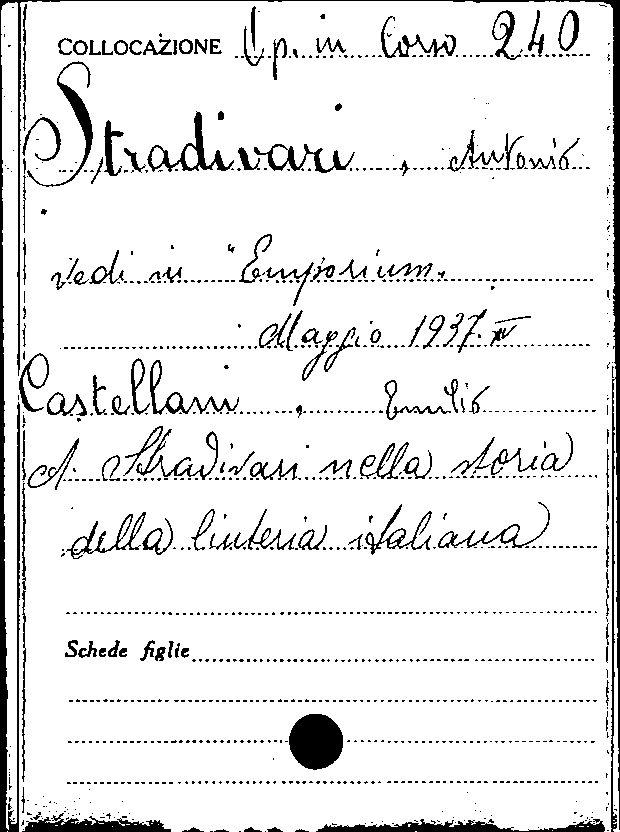 COLLOCAZIONE Op. in Corso 240
Stradivari, Antonio
Vedi in "Emporium.
Maggio 1937. XV
Castellani, Emilio
A. Stradivari nella storia
della liuteria italiana
Schede figlie